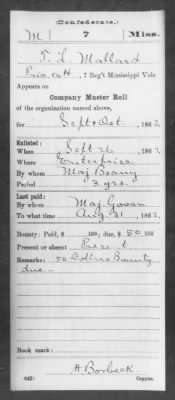 (Confederate.)
M 7 Miss.
T. L. Mallard
Priv, Co H, 7 Reg't Mississippi Vols
Appears on
Company Muster Roll
of the organization named above,
for Sept & Oct, 186
Enlisted:
When Sept 26, 186
Where Enterprise
By whom Maj
Period 3 yrs.
Last paid:
By whom Maj. Gowan
To what time Aug 31, 186
Bounty: Paid, $ 100; due, $ 50 100
Present or absent Present
Remarks: 50 Dollars Bounty
due
Book mark:
H Borbeck
(642) Copyist.